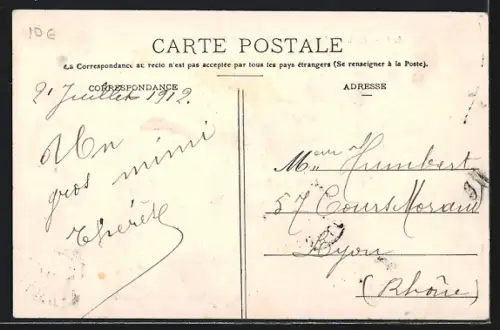 10€
CARTE POSTALE
La Correspondance au recto n'est pas acceptée par tous les pays étrangers (Se renseigner à la Poste).
CORRESPONDANCE
ADRESSE
2 Juillet 1912.
Un
gros mimi
Thérèse
Humbert
57 Cours Morand
Lyon
(Rhône)